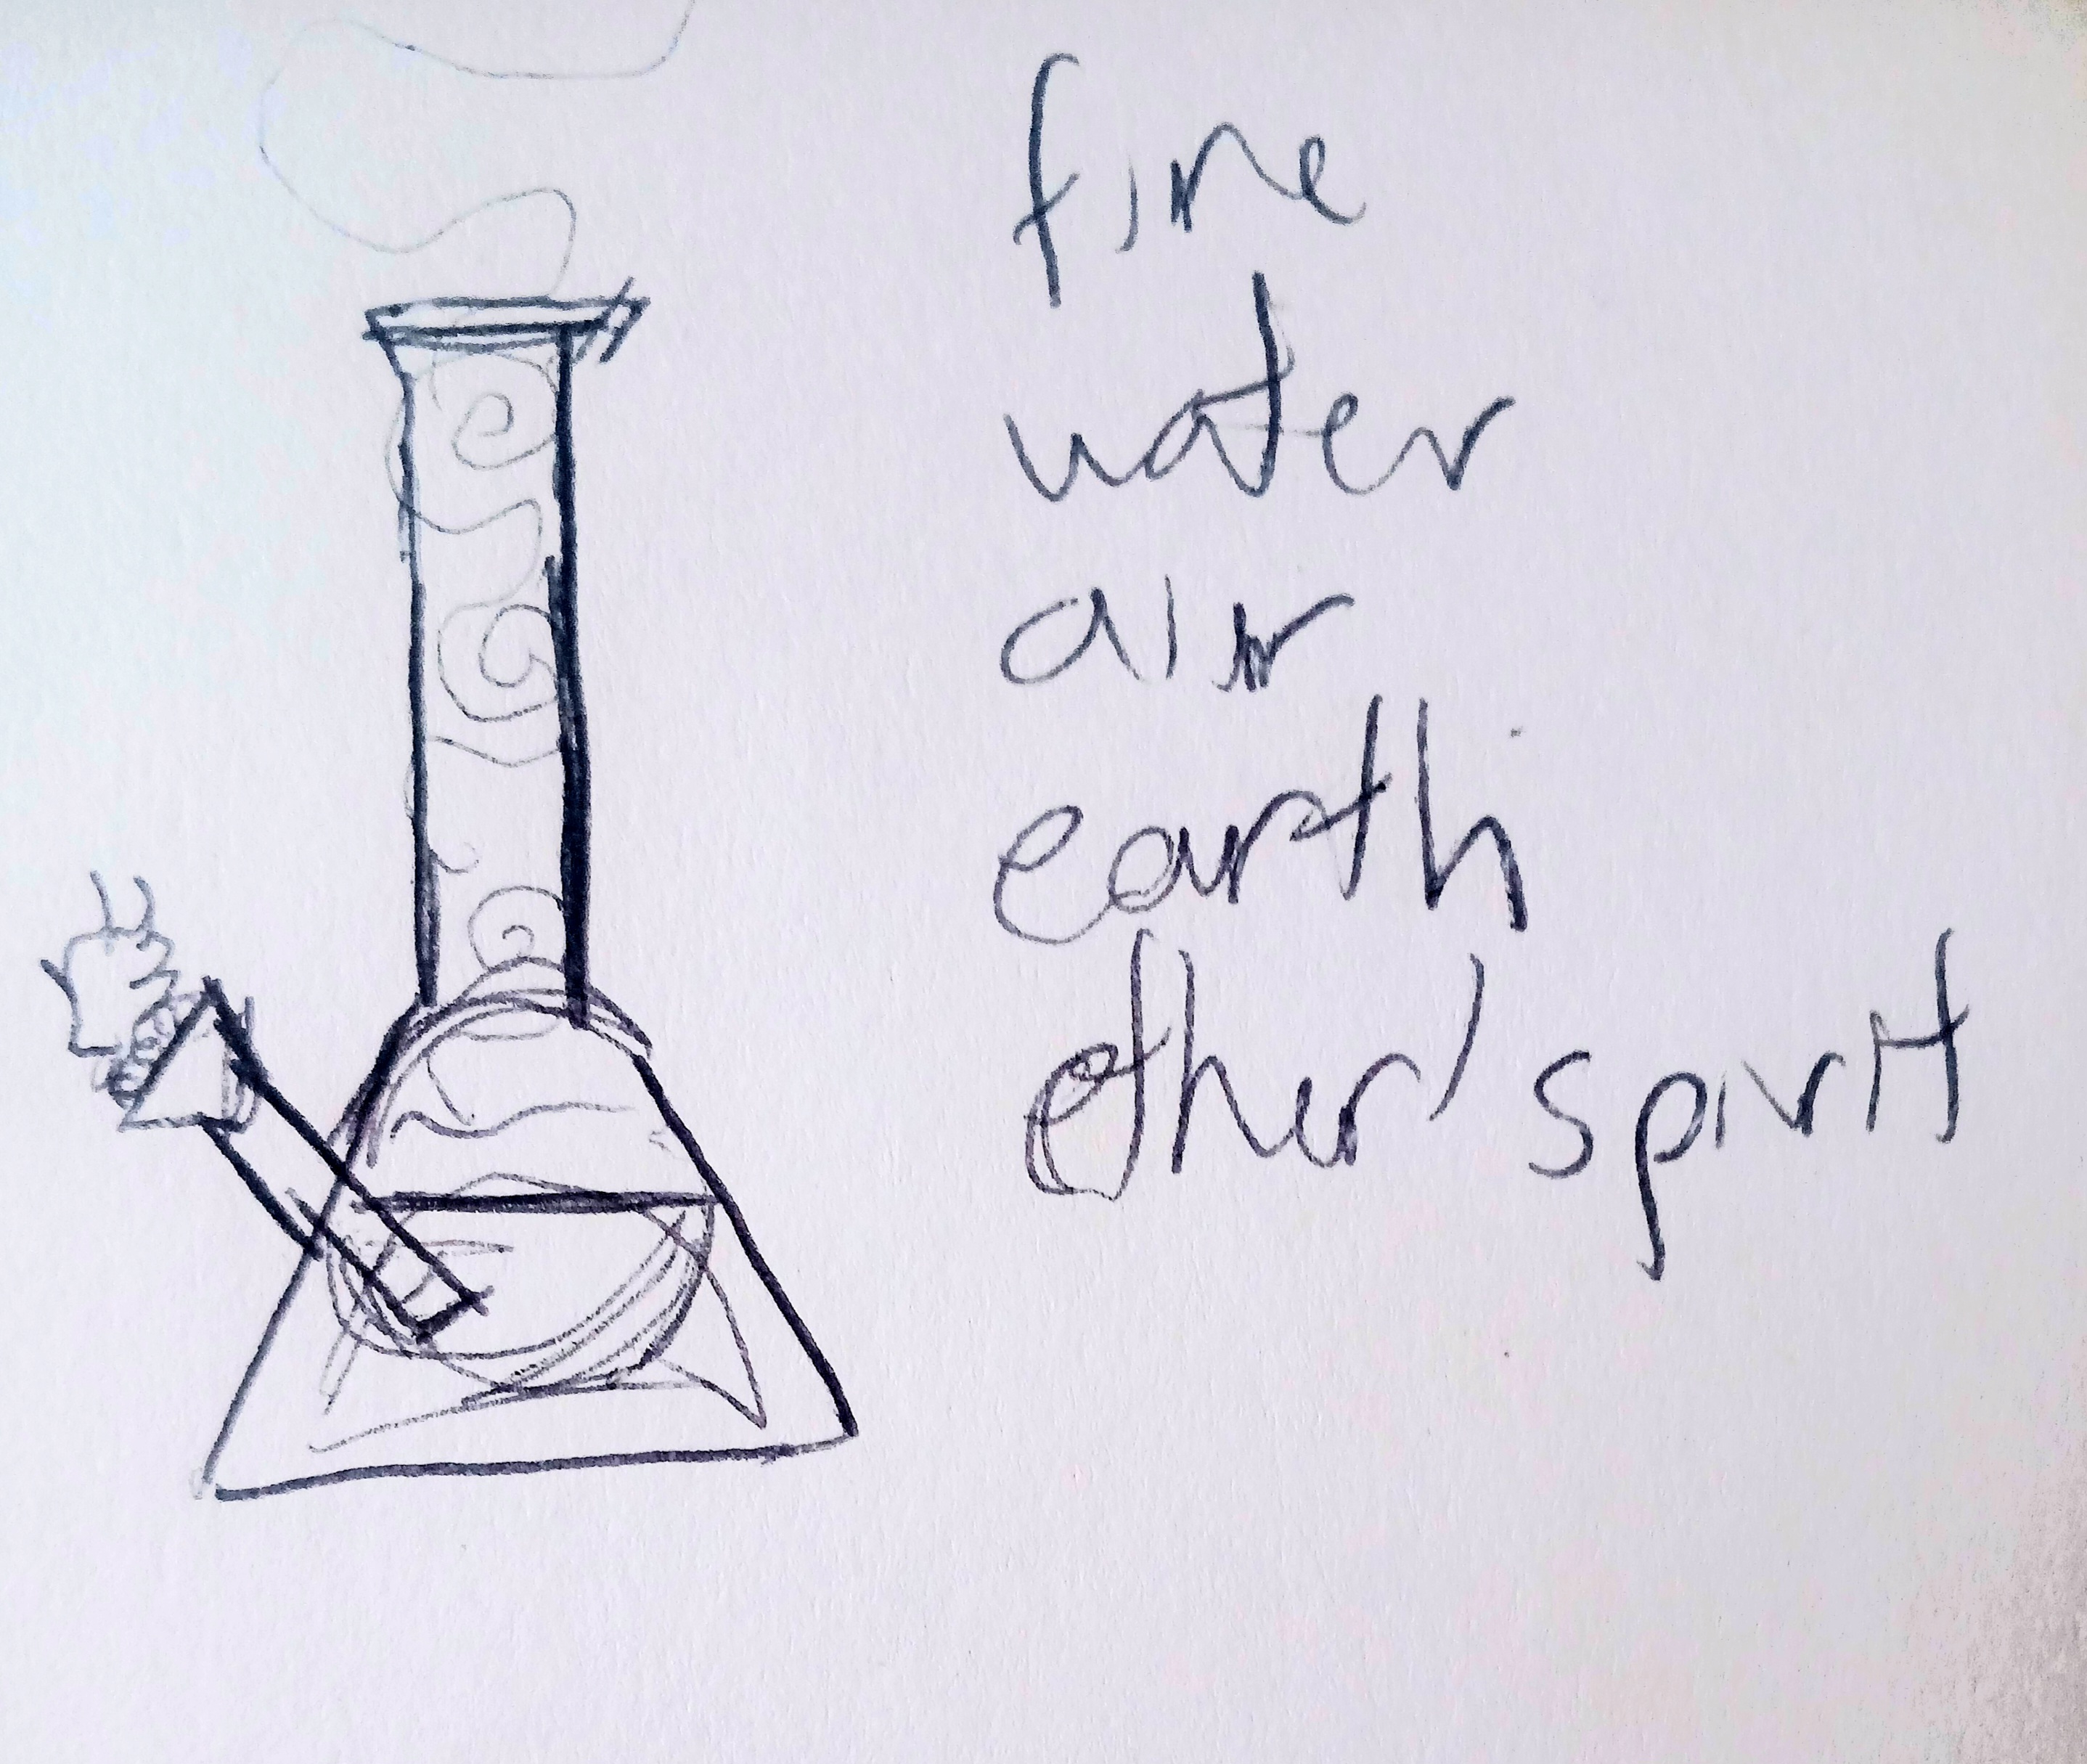 fire
water
air
earth
ether/spirit